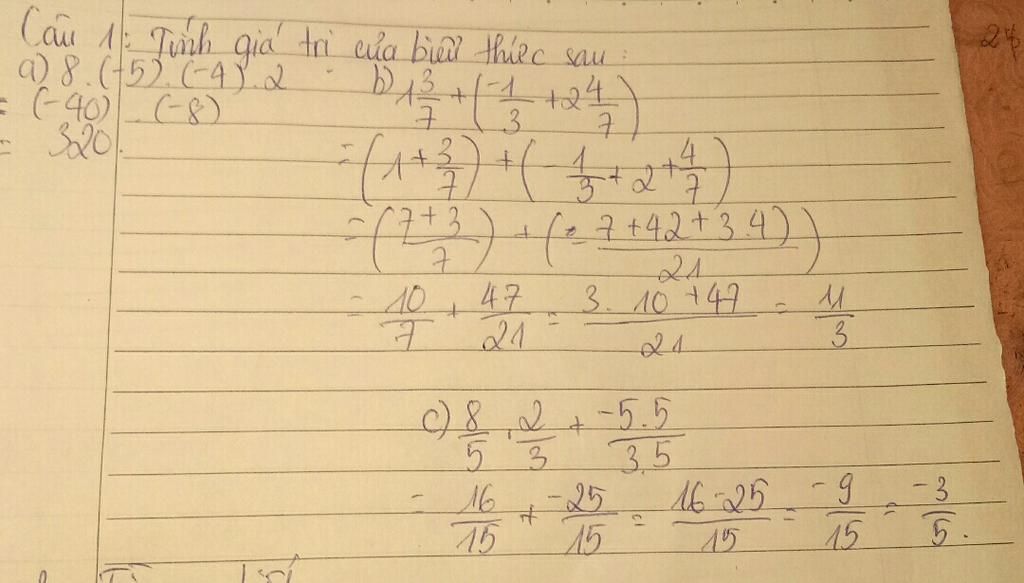 Câu 1: Tính giá trị của biểu thức sau:
a) 8 . (-5) . (-4) . 2
= (-40) . (-8)
= 320.
b) 1 3/7 + (-1/3 + 2 4/7)
= (1 + 3/7) + (-1/3 + 2 + 4/7)
= ((7 + 3)/7) + ((- 7 + 42 + 3.4)/21)
= 10/7 + 47/21 = (3. 10 + 47)/21 = 11/3
c) 8/5 . 2/3 + (-5.5)/(3.5)
= 16/15 + -25/15 = (16 - 25)/15 = -9/15 = -3/5.